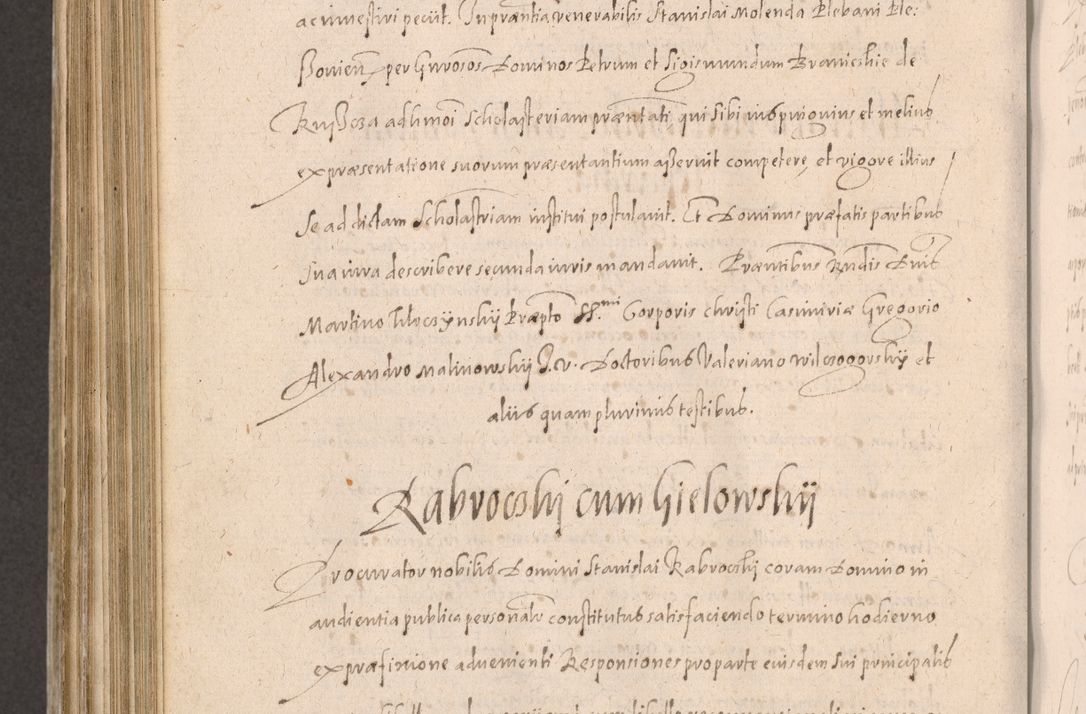 ac investiri peciit. In præntia venerabilis Stanislai Molenda Plebani Ple:
Bovien per Gnrosos Dominos Petrum et Sigismundum Branieskie de
Ruszcza ad hmoi Scholasteriam præntati qui sibi ius prioruius et melius
ex præsentatione suorum præsentantium asseruit competere, et vigore illius
Se ad dictam Scholastriam institui postulavit. Et Dominus præfatis partibus
Sua iura describere secunda iuris mandavit. Præntibus Rndis Dnis
Martino Præpto SS.mi Corporis christi Casimiriæ Gregorio
Alexandro Malinowskij I. V. Doctoribus Valeriano Wilczogorskij et
aliis quam plurimis testibus.
Kabroczkij cum Gielowskij
Procurator nobilis Domini Stanislai Kabroczkij coram Domino in
audientia publica personalr constitutus satisfaciendo termino hodierno
ex præfixione advenienti Responsiones pro parte eiusdem sui principalis